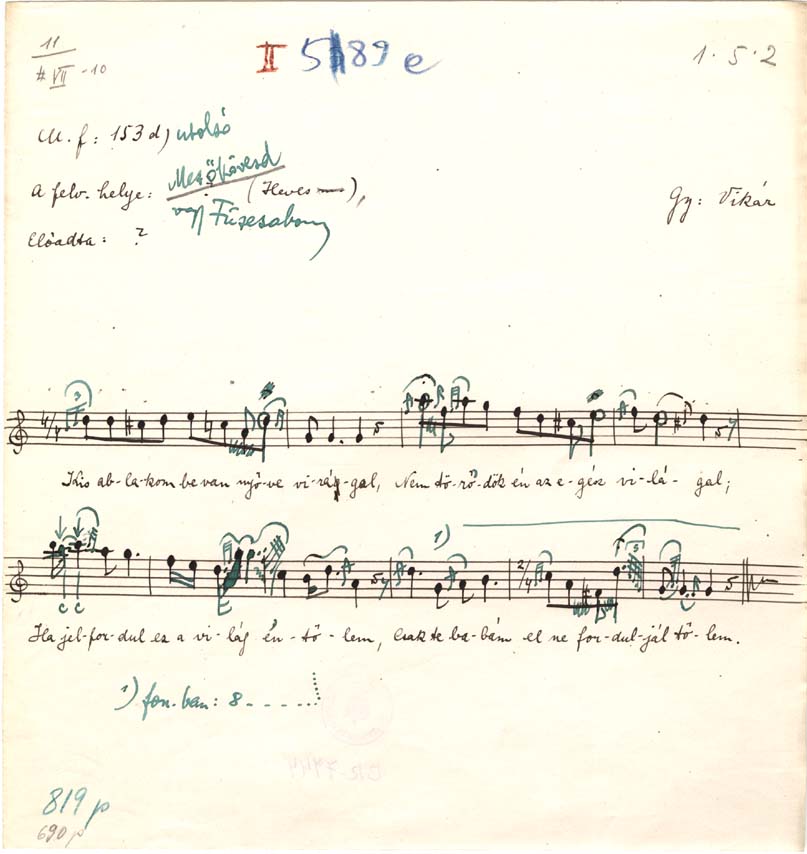 11
# VII -10
II 5189 e
1 . 5 . 2
M. f: 153 d) utolsó
A felv. helye: Mezőkövesd (Heves),
vagy Füzesabony
Gy: Vikár
Előadta: ?
4/4
Kis ab-la-kom be van nyő-ve vi-rág-gal, Nem tö-rő-dök én az e-gész vi-lá-gal;
1)
2/4
Ha fel-for-dul ez a vi-lág én-tő-lem, Csak te ba-bám el ne for-dul-jál tő-lem.
1) fon.-ban: 8 - - - - -
819 p
690 p